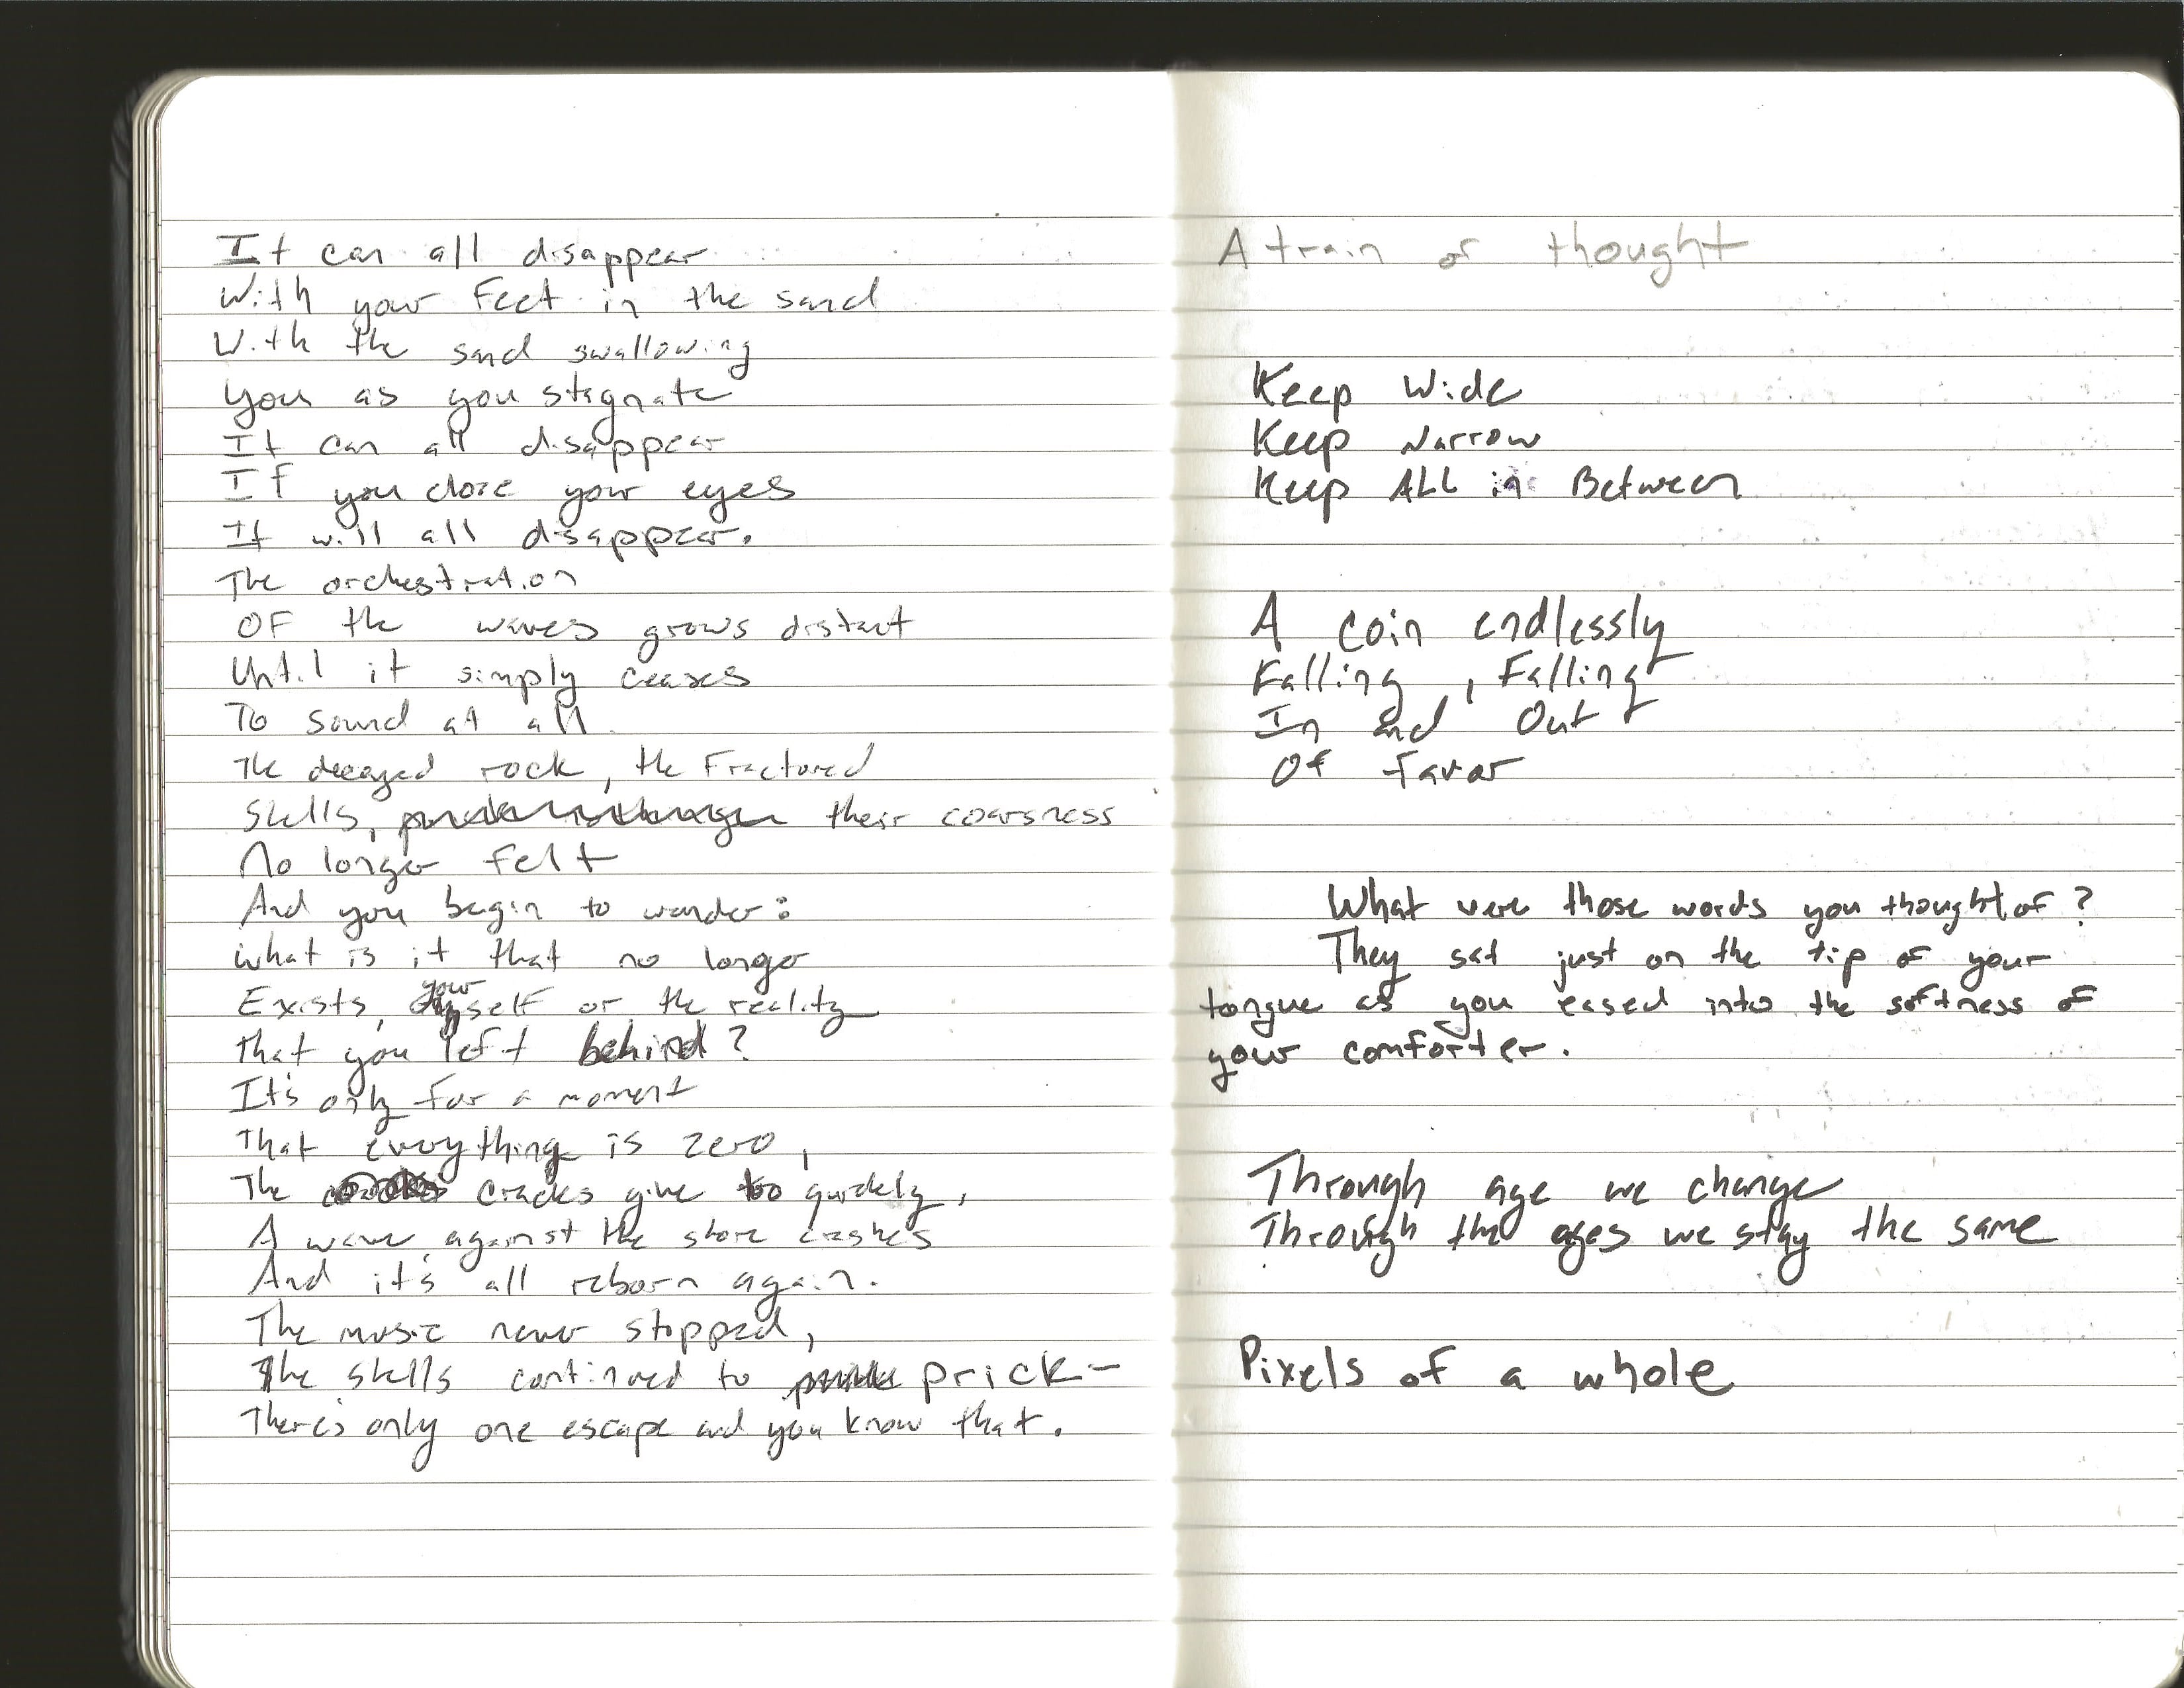 It can all disappear
With your Feet in the sand
With the sand swallowing
You as you stagnate
It can all disappear
If you close your eyes
It will all disappear.
The orchestration
OF the waves grows distant
Until it simply ceases
To sound at all.
The decayed rock, the Fractured
Shells, their coarsness
No longer felt
And you begin to wonder:
What is it that no longer
Exists, yourself or the reality
That you left behind?
It's only for a moment
That everything is zero,
The cracks give too quickly,
A wave against the shore crashes
And it's all reborn again.
The music never stopped,
The shells continued to prick-
There's only one escape and you know that.
A train of thought
Keep Wide
Keep Narrow
Keep ALL in Between
A coin endlessly
Falling, Falling
In and Out
Of Favor
What were those words you thought of?
They sat just on the tip of your
tongue as you eased into the softness of
your comforter.
Through age we change
Through the ages we stay the same
Pixels of a whole